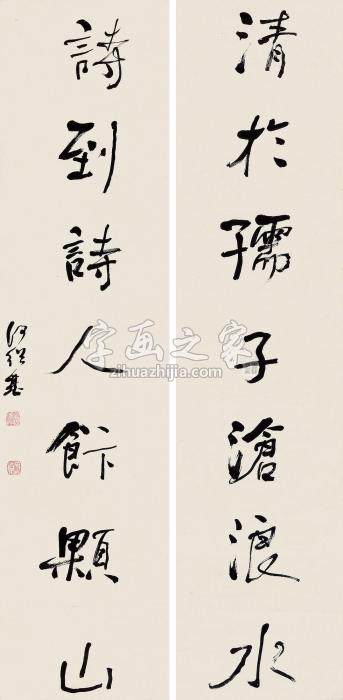 清於孺子滄浪水
詩到詩人飰顆山
何紹基
字画之家
zihuazhijia.com